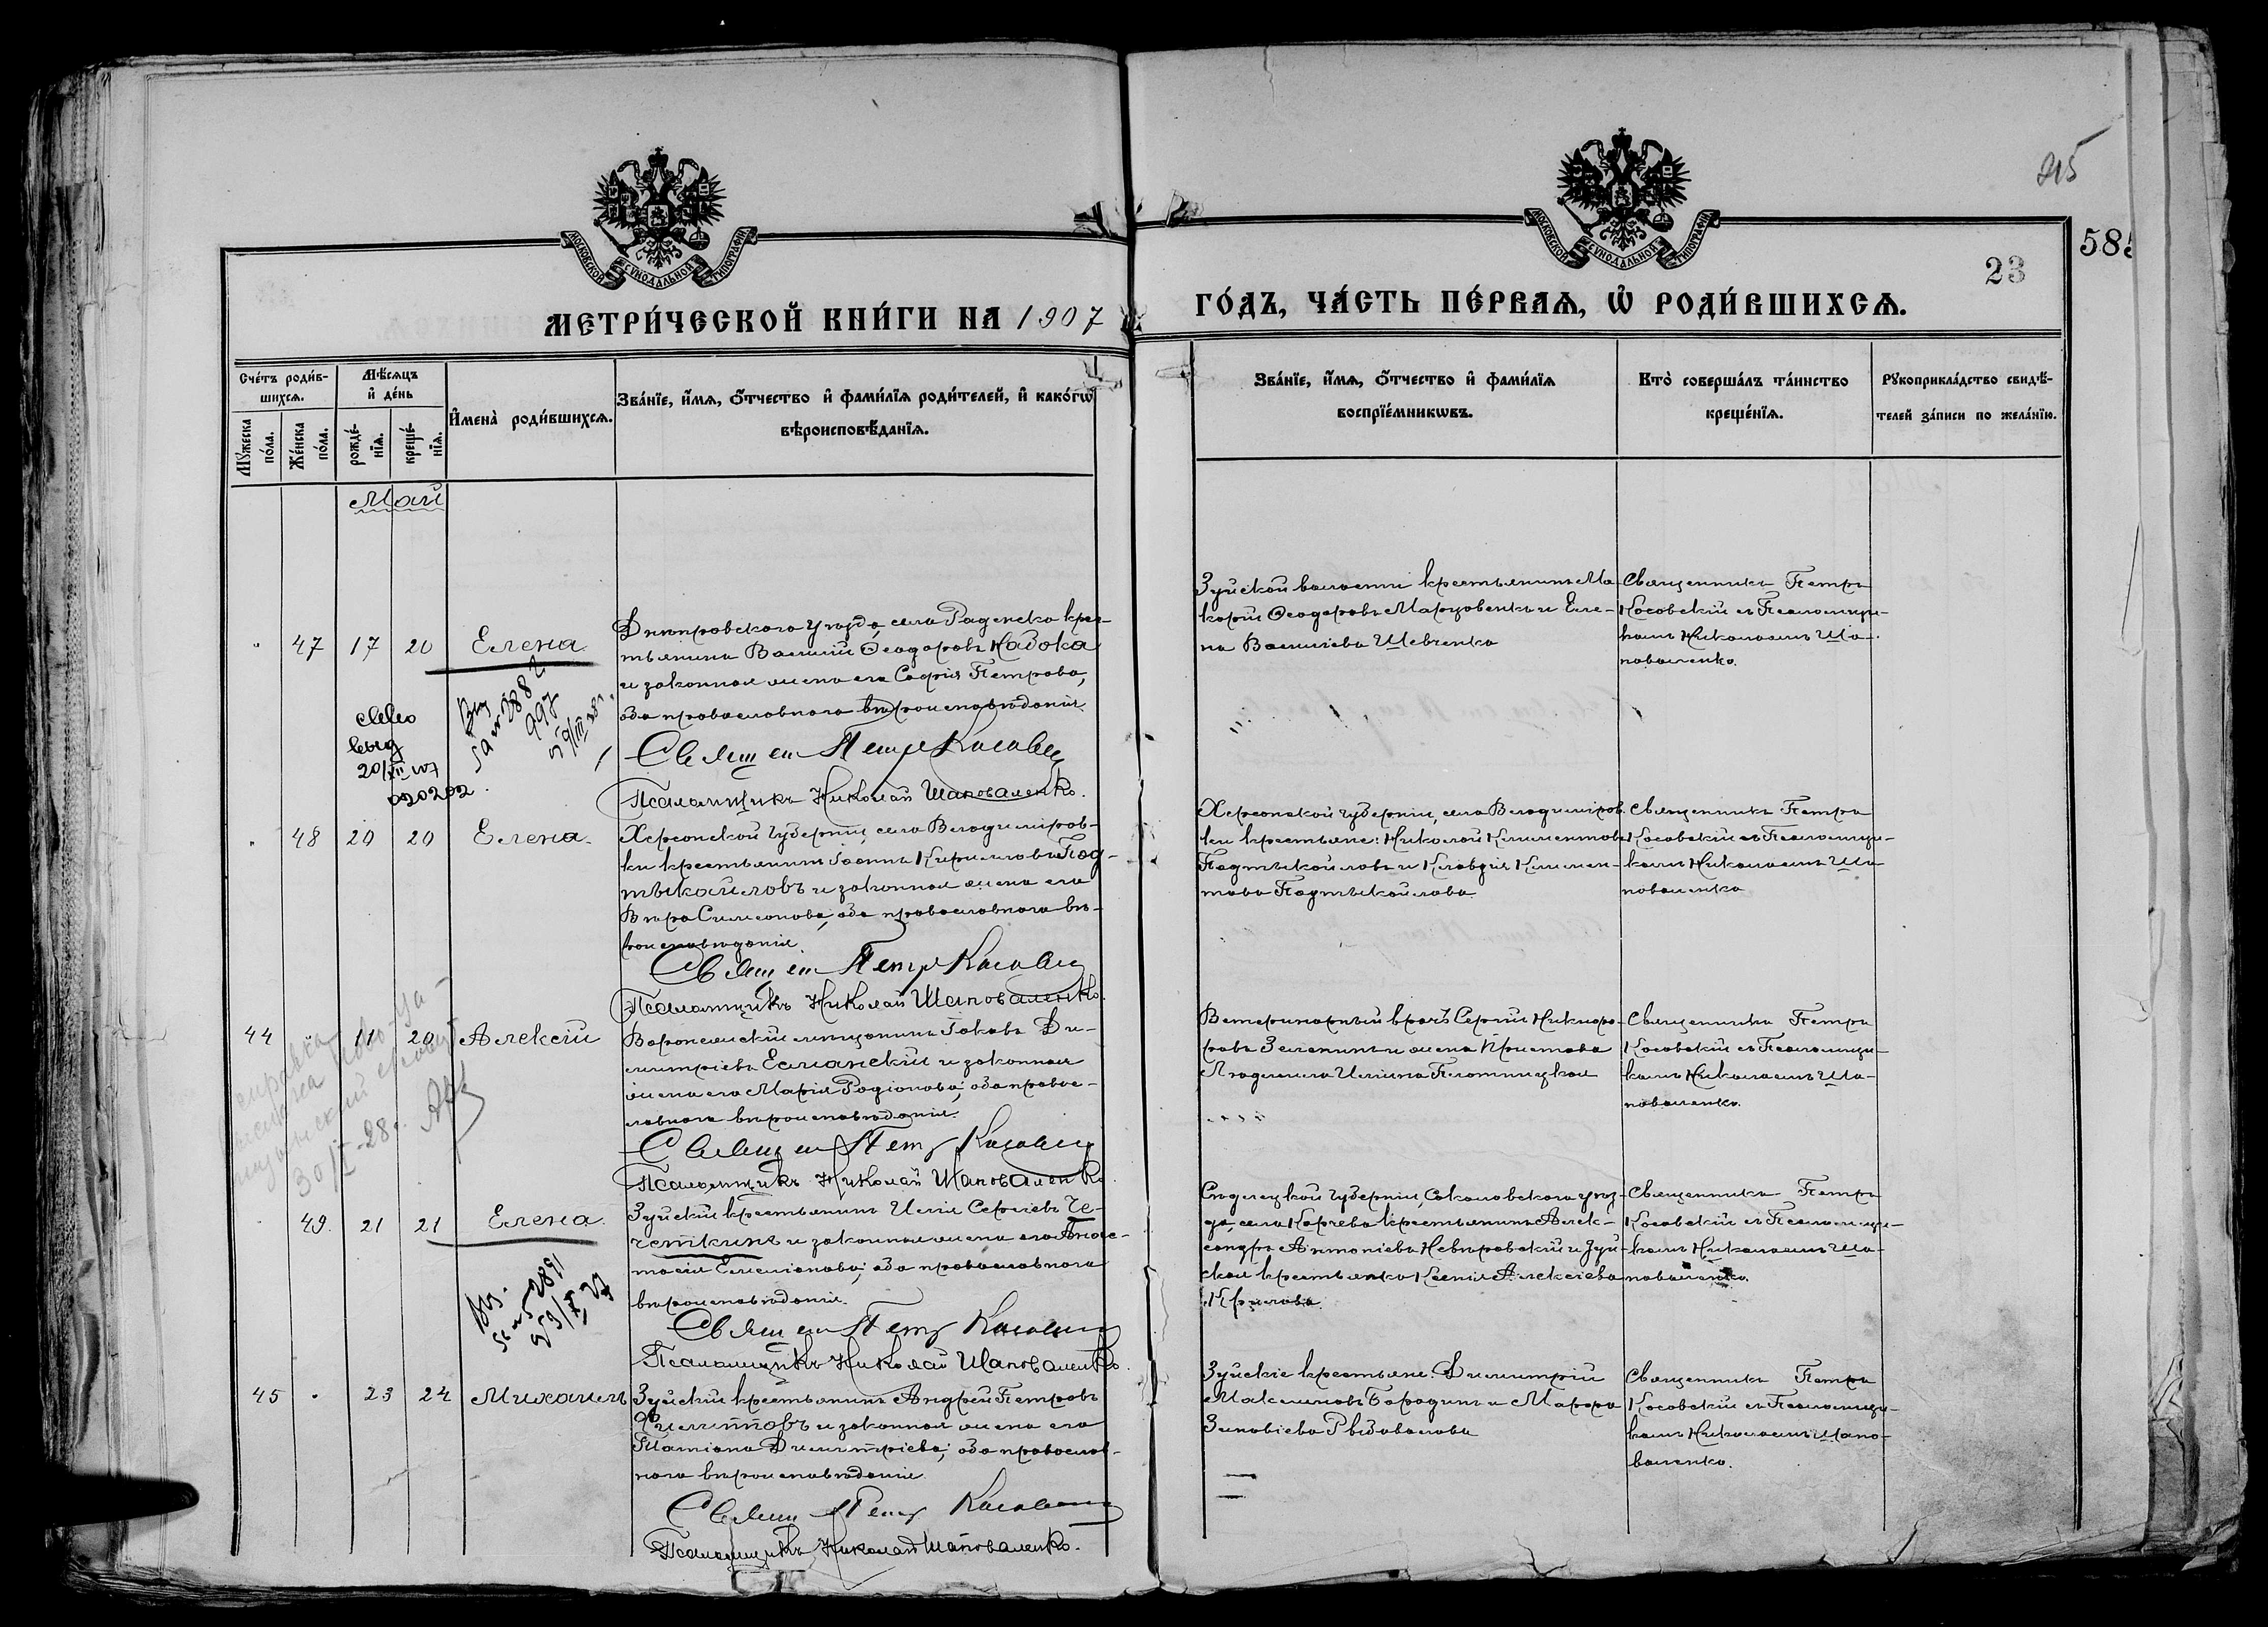 215
585
23
МОСКОВСКОЙ СѴНОДАЛЬНОЙ ТИПОГРАФІИ
МОСКОВСКОЙ СѴНОДАЛЬНОЙ ТИПОГРАФІИ
МЕТРИ́ЧЕСКОЙ КНИ́ГИ НА 1907
ГО́ДЪ, ЧА́СТЬ ПЕ́РВАѦ, Ѡ҆ РОДИ́ВШИХСѦ.
Сче́тъ роди́в-
шихсѧ.
Мѣ́сѧцъ
и҆ де́нь
Мꙋ́жеска
по́ла.
Же́нска
по́ла.
рожде́-
нїѧ.
креще́-
нїѧ.
И҆мена̀ роди́вшихсѧ.
Зва́нїе, и҆́мѧ, ѻ҆́тчество и҆ фами́лїѧ роди́телей, и҆ како́гѡ
вѣроисповѣ́данїѧ.
Зва́нїе, и҆́мѧ, ѻ҆́тчество и҆ фами́лїѧ
воспрїе́мникѡвъ.
Кто̀ соверша́лъ та́инство
креще́нїѧ.
Рꙋкоприкла́дство свидѣ́-
телей за́писи по жела́нїю.
Май
47 17 20 Елена
Днѣпровскаго уѣзда, села Раденска кре-
стьянинъ Василій Ѳеодоровъ Набока
и законная жена его Софія Петрова,
оба православнаго вѣроисповѣданія.
Священ Петръ Косовскій
Псаломщикъ Николай Шаповаленко.
Зуйской волости крестьянинъ Ма-
карій Ѳеодоровъ Марцовенко и Еле-
на Васильева Шевченко
Священникъ Петръ
Косовскій съ Псаломщи-
комъ Николаемъ Ша-
поваленко.
20/VII
020202
48 20 20 Елена.
Херсонской губерніи, села Владиміров-
ки крестьянинъ Іоаннъ Кирилловъ Под-
тыкайловъ и законная жена его
Вѣра Симеонова, оба православнаго вѣ-
роисповѣданія.
Священ Петръ Косовскій
Псаломщикъ Николай Шаповаленко.
Херсонской губерніи, села Владиміров-
ки крестьяне: Николай Климентовъ
Подтыкайловъ и Клавдія Климен-
това Подтыкайлова.
Священникъ Петръ
Косовскій съ Псаломщи-
комъ Николаемъ Ша-
поваленко
44 11 20 Алексій
Воронежскій мѣщанинъ Іаковъ Ди-
митріевъ Есманскій и законная
жена его Марія Родіонова, оба правос-
лавнаго вѣроисповѣданія.
Священ Петръ Косовскій
Псаломщикъ Николай Шаповаленко.
Ветеринарный врачъ Сергій Никифо-
ровъ Зеленинъ и жена Пристава
Людмила Ильина Плотницкая
Священникъ Петръ
Косовскій съ Псаломщи-
комъ Николаемъ Ша-
поваленко.
справка
49. 21 21 Елена.
Зуйскій крестьянинъ Илія Сергіевъ Че-
четкинъ и законная жена его Анас-
тасія Емеліанова, оба православнаго
вѣроисповѣданія.
Священ Петръ Косовскій
Псаломщикъ Николай Шаповаленко.
Сѣдлецкой губерніи, Соколовскаго уѣз-
да, села Корчева крестьянинъ Алек-
сандръ Антоніевъ Невѣровскій и Зуй-
ская крестьянка Ксенія Алексіева
Священникъ Петръ
Косовскій съ Псаломщи-
комъ Николаемъ Ша-
поваленко.
45 23 24 Михаилъ
Зуйскій крестьянинъ Андрей Петровъ
Филиповъ и законная жена его
Татіана Димитріева, оба православ-
наго вѣроисповѣданія.
Священ Петръ Косовскій
Псаломщикъ Николай Шаповаленко.
Зуйскіе крестьяне: Димитрій
Максимовъ Бородинъ и Марфа
Зиновіева
Священникъ Петръ
Косовскій съ Псаломщи-
комъ Николаемъ Шапо-
валенко.